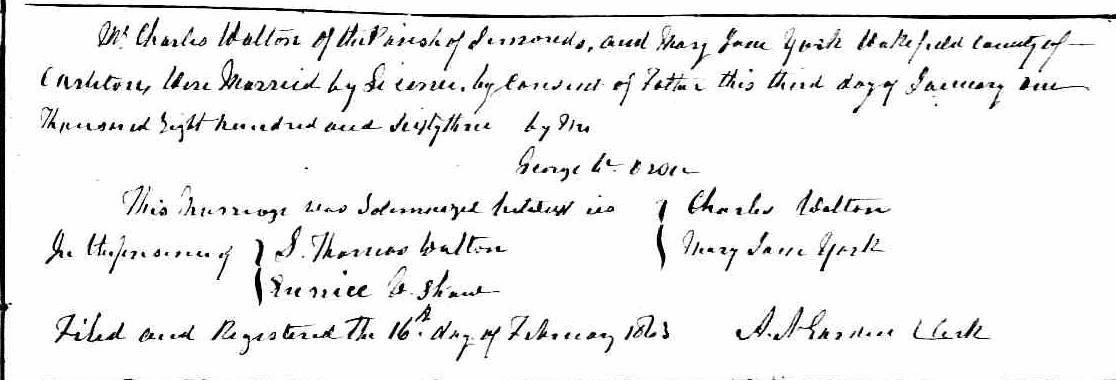 Mr Charles Walton of the Parish of Simonds, and Mary Jane York Wakefield County of
Carleton, Were Married by License, by Consent of Father this third day of January one
Thousand Eight hundred and Sixty three by Me
George W. Orser
This Marriage was Solemnized between us Charles Walton
In the presence of S. Thomas Walton Mary Jane York
Eunice W. Shaw
Filed and Registered the 16th day of February 1863 A. N. Garden Clerk